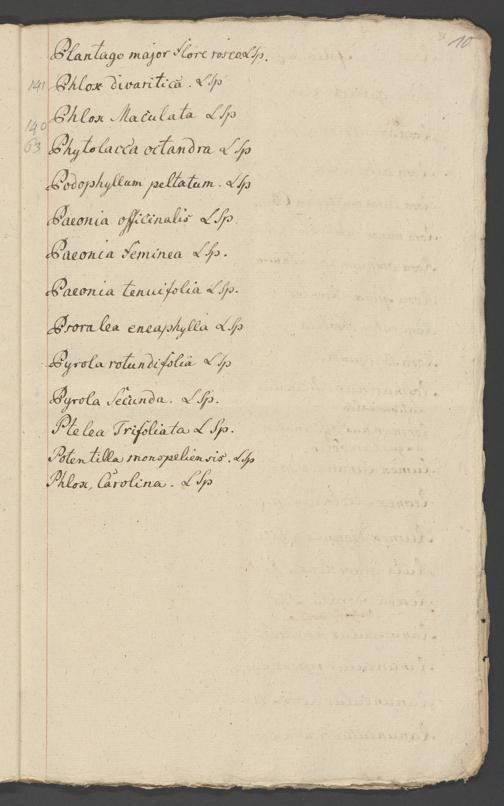 10
Plantago major flore roseo L Sp.
141 Phlox divaritica. L Sp
Phlox Maculata L Sp
140
63 Phytolacca octandra L Sp
Podophyllum peltatum. L Sp
Paeonia officinalis L Sp.
Paeonia Feminea L Sp.
Paeonia tenuifolia L Sp.
Psoralea eneaphylla L Sp
Pyrola rotundifolia L Sp
Pyrola Secunda. L Sp.
Ptelea Trifoliata L Sp.
Potentilla monspeliensis. L Sp
Phlox, Carolina. L Sp